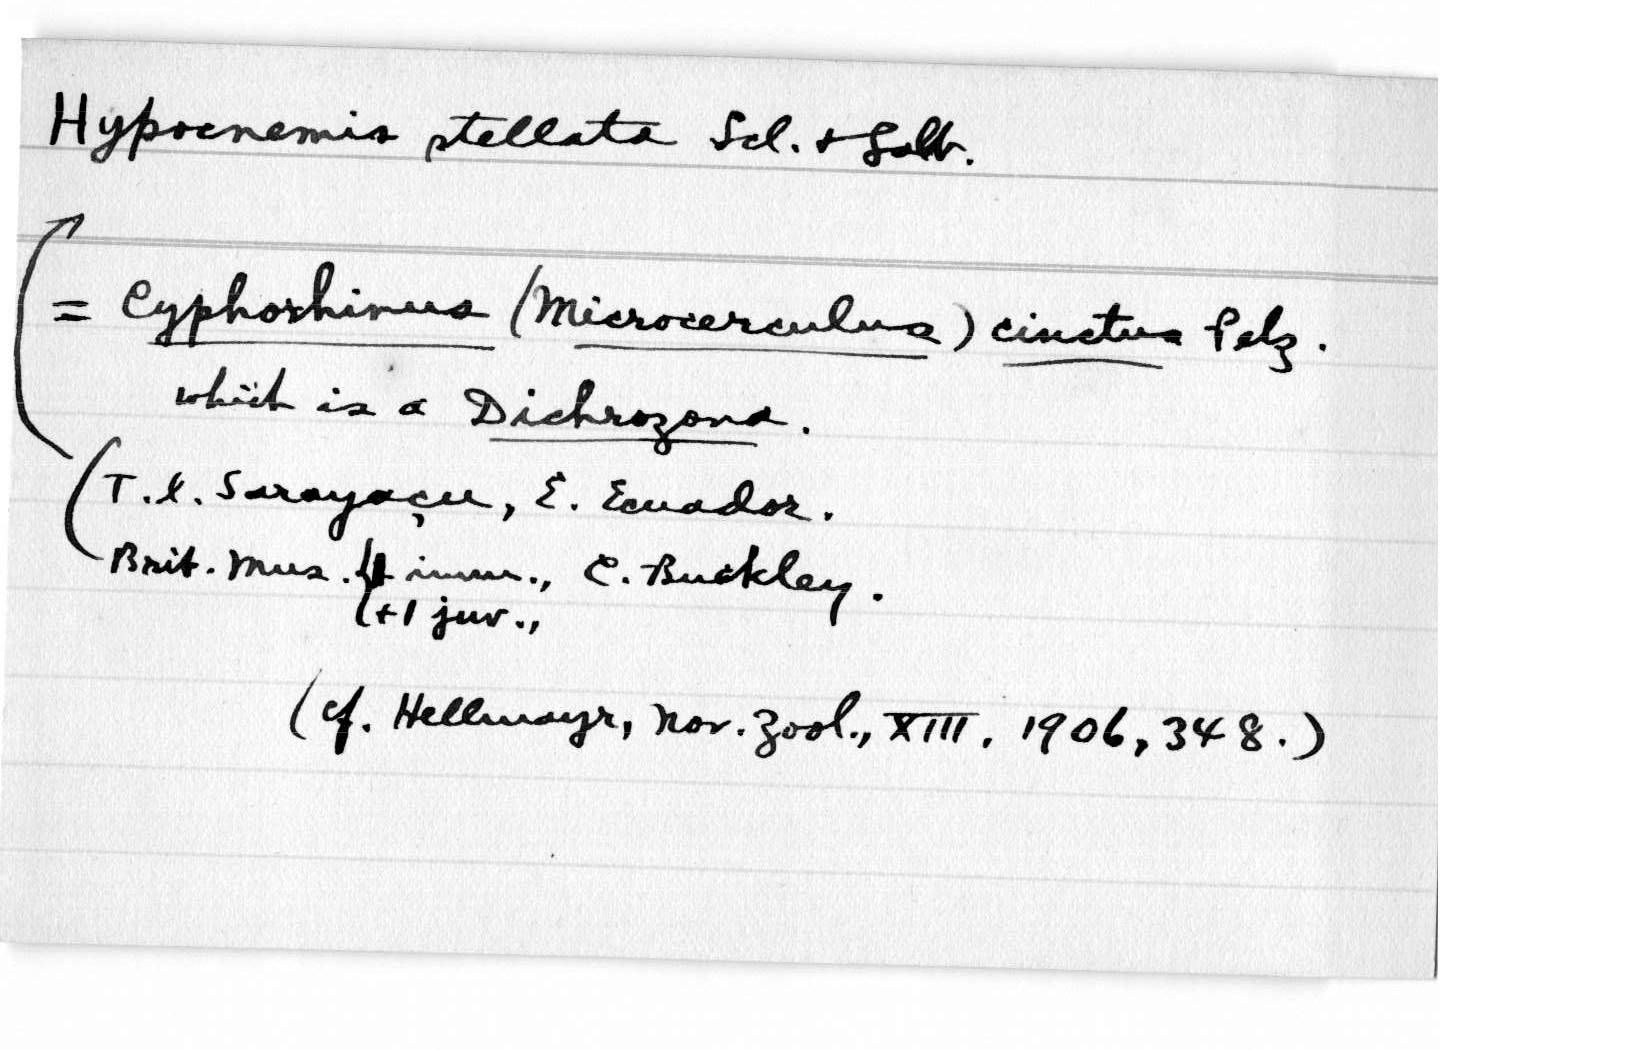 Hypocnemis stellata Scl. + Salv.
= Cyphorhinus (Microcerculus) cinctus Pelz.
which is a Dichrozona.
(T.l. Sarayaçu, E. Ecuador.
Brit. Mus. 1 imm., C. Buckley.
(+1 juv.,
(cf. Hellmayr, Nov. Zool., XIII, 1906, 348.)